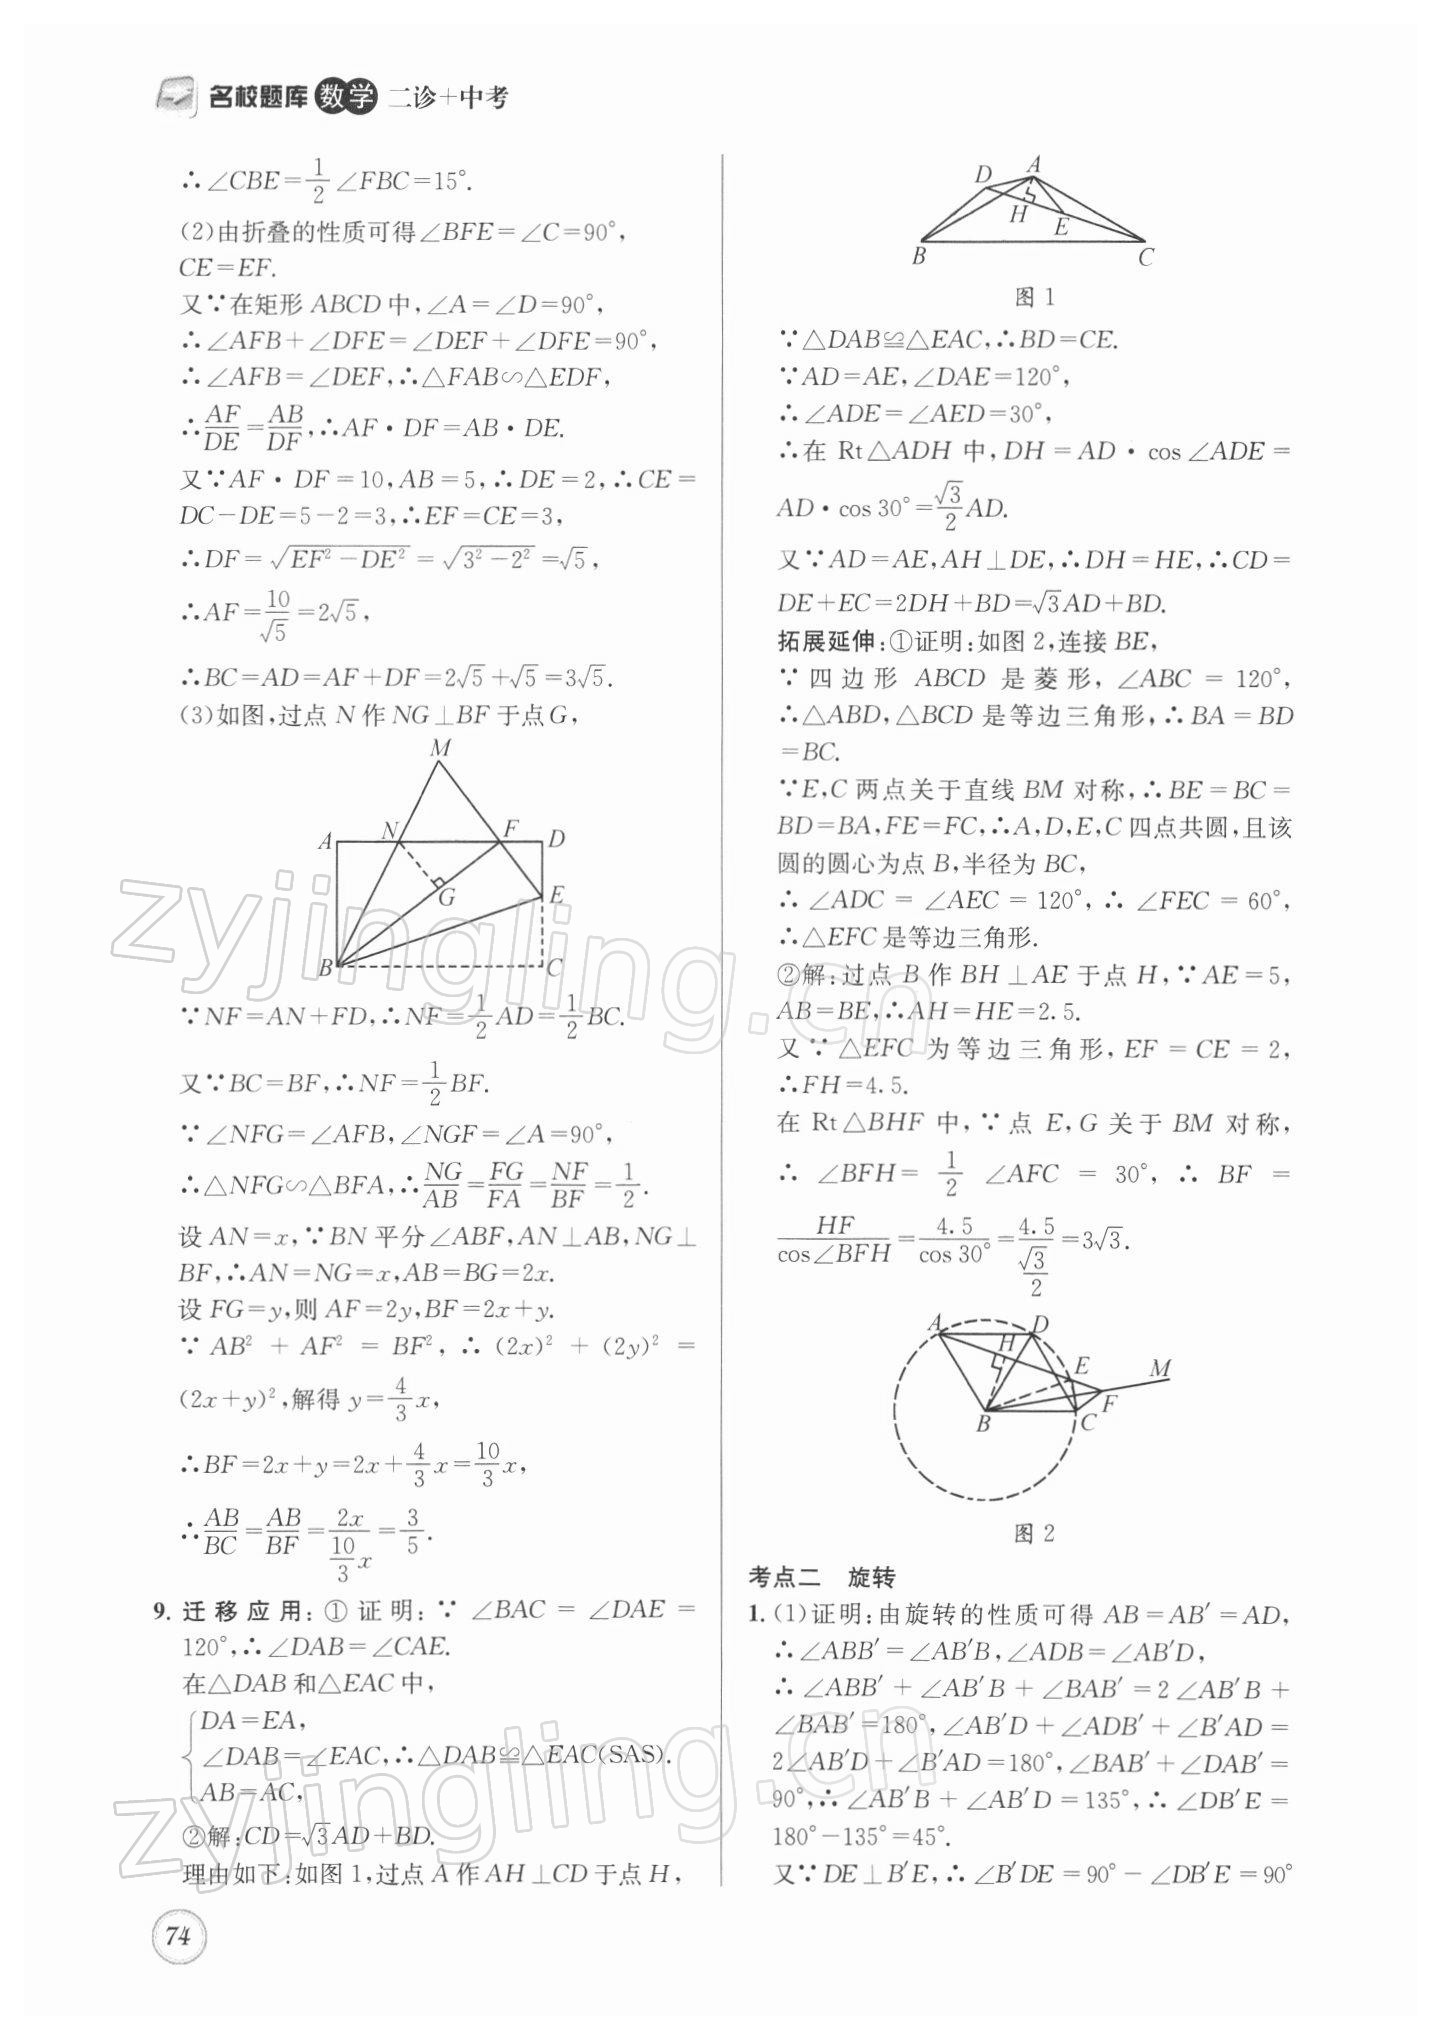 名校题库 数学 二诊+中考
∴∠CBE=1/2∠FBC=15°.
(2)由折叠的性质可得∠BFE=∠C=90°,
CE=EF.
又∵在矩形ABCD中,∠A=∠D=90°,
∴∠AFB+∠DFE=∠DEF+∠DFE=90°,
∴∠AFB=∠DEF,∴△FAB∽△EDF,
∴AF/DE=AB/DF,∴AF·DF=AB·DE.
又∵AF·DF=10,AB=5,∴DE=2,∴CE=
DC-DE=5-2=3,∴EF=CE=3,
∴DF=√(EF²-DE²)=√(3²-2²)=√5,
∴AF=10/√5=2√5,
∴BC=AD=AF+DF=2√5+√5=3√5.
(3)如图,过点N作NG⊥BF于点G,
M
A N F D
G
E
B C
∵NF=AN+FD,∴NF=1/2AD=1/2BC.
又∵BC=BF,∴NF=1/2BF.
∵∠NFG=∠AFB,∠NGF=∠A=90°,
∴△NFG∽△BFA,∴NG/AB=FG/FA=NF/BF=1/2.
设AN=x,∵BN平分∠ABF,AN⊥AB,NG⊥
BF,∴AN=NG=x,AB=BG=2x.
设FG=y,则AF=2y,BF=2x+y.
∵AB²+AF²=BF²,∴(2x)²+(2y)²=
(2x+y)²,解得y=4/3x,
∴BF=2x+y=2x+4/3x=10/3x,
∴AB/BC=AB/BF=2x/(10/3x)=3/5.
9. 迁移应用:①证明:∵∠BAC=∠DAE=
120°,∴∠DAB=∠CAE.
在△DAB和△EAC中,
DA=EA,
∠DAB=∠EAC,∴△DAB≌△EAC(SAS).
AB=AC,
②解:CD=√3AD+BD.
理由如下:如图1,过点A作AH⊥CD于点H,
A
D
H
E
B C
图1
∵△DAB≌△EAC,∴BD=CE.
∵AD=AE,∠DAE=120°,
∴∠ADE=∠AED=30°,
∴在Rt△ADH中,DH=AD·cos∠ADE=
AD·cos30°=√3/2AD.
又∵AD=AE,AH⊥DE,∴DH=HE,∴CD=
DE+EC=2DH+BD=√3AD+BD.
拓展延伸:①证明:如图2,连接BE,
∵四边形ABCD是菱形,∠ABC=120°,
∴△ABD,△BCD是等边三角形,∴BA=BD
=BC.
∵E,C两点关于直线BM对称,∴BE=BC=
BD=BA,FE=FC,∴A,D,E,C四点共圆,且该
圆的圆心为点B,半径为BC,
∴∠ADC=∠AEC=120°,∴∠FEC=60°,
∴△EFC是等边三角形.
②解:过点B作BH⊥AE于点H,∵AE=5,
AB=BE,∴AH=HE=2.5.
又∵△EFC为等边三角形,EF=CE=2,
∴FH=4.5.
在Rt△BHF中,∵点E,G关于BM对称,
∴∠BFH=1/2∠AFC=30°,∴BF=
HF/cos∠BFH=4.5/cos30°=4.5/(√3/2)=3√3.
A D
H
E M
F
B C
图2
考点二 旋转
1. (1)证明:由旋转的性质可得AB=AB′=AD,
∴∠ABB′=∠AB′B,∠ADB=∠AB′D,
∴∠ABB′+∠AB′B+∠BAB′=2∠AB′B+
∠BAB′=180°,∠AB′D+∠ADB′+∠B′AD=
2∠AB′D+∠B′AD=180°,∠BAB′+∠DAB′=
90°,∴∠AB′B+∠AB′D=135°,∴∠DB′E=
180°-135°=45°.
又∵DE⊥B′E,∴∠B′DE=90°-∠DB′E=90°
74
zyjingling.cn
zyjingling.cn